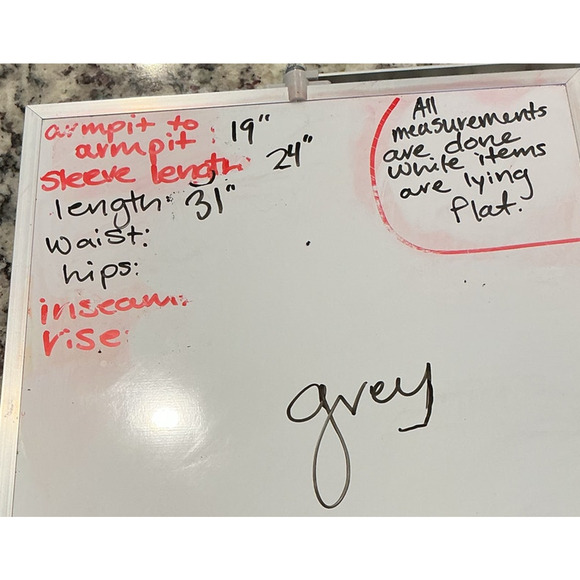 armpit to
armpit : 19"
sleeve length: 24"
length: 31"
waist:
hips:
inseam:
rise:
All
measurements
are done
while items
are lying
flat.
grey